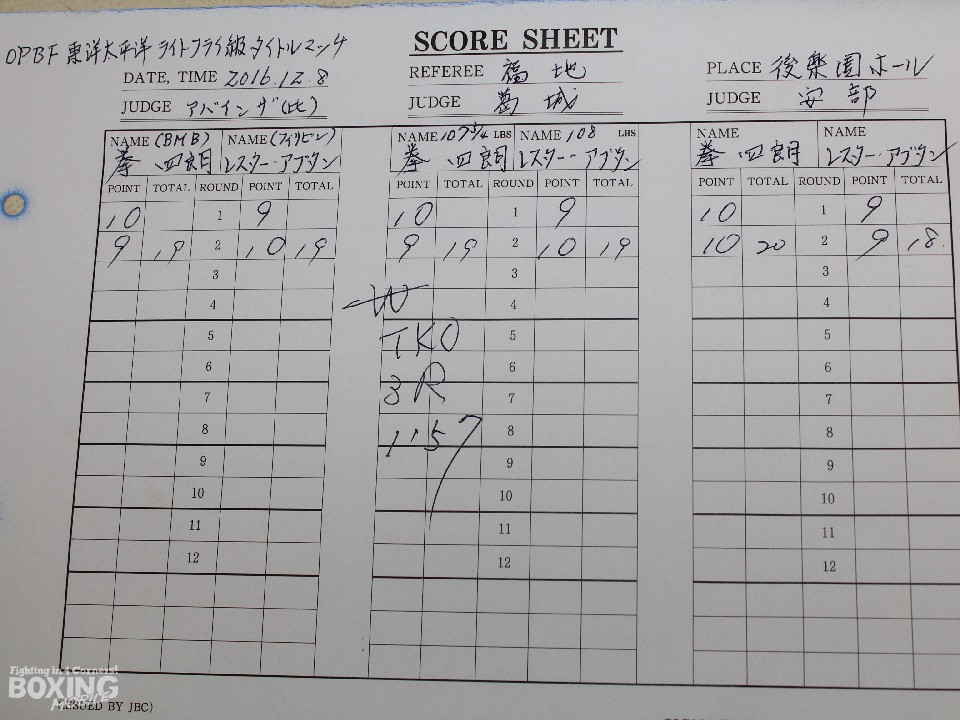 OPBF 東洋太平洋 ライトフライ級 タイトルマッチ
SCORE SHEET
DATE, TIME 2016.12.8 REFEREE 福地 PLACE 後楽園ホール
JUDGE アバインザ(比) JUDGE 葛城 JUDGE 安部
NAME (BMB) NAME (フィリピン) NAME 107 3/4 LBS NAME 108 LBS NAME NAME
拳 四朗 レスター・アブタン 拳 四朗 レスター・アブタン 拳 四朗 レスター・アブタン
POINT TOTAL ROUND POINT TOTAL POINT TOTAL ROUND POINT TOTAL POINT TOTAL ROUND POINT TOTAL
10 1 9 10 1 9 10 1 9
9 19 2 10 19 9 19 2 10 19 10 20 2 9 18
3 3 3
4 W 4 4
5 TKO 5 5
6 6 6
7 3R 7 7
8 1'57 8 8
9 9 9
10 10 10
11 11 11
12 12 12
Fighting in 4 Corners!
BOXING
MOBILE
(ISSUED BY JBC)